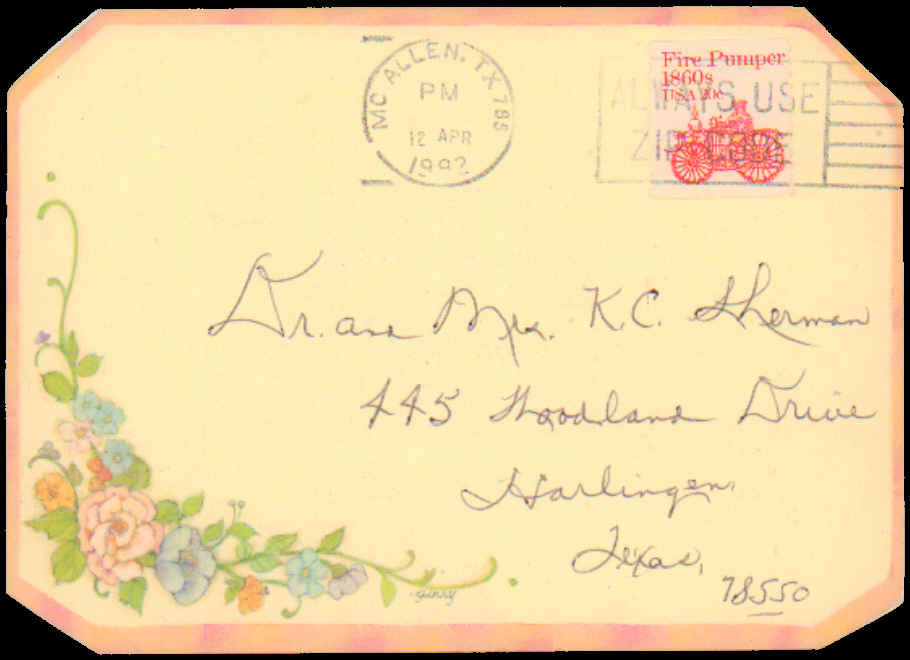 MC ALLEN, TX 785
PM
12 APR
1992
Fire Pumper
1860s
USA 20c
ALWAYS USE
ZIP CODE
Dr. and Mrs. K.C. Sherman
445 Woodland Drive
Harlingen,
Texas,
78550